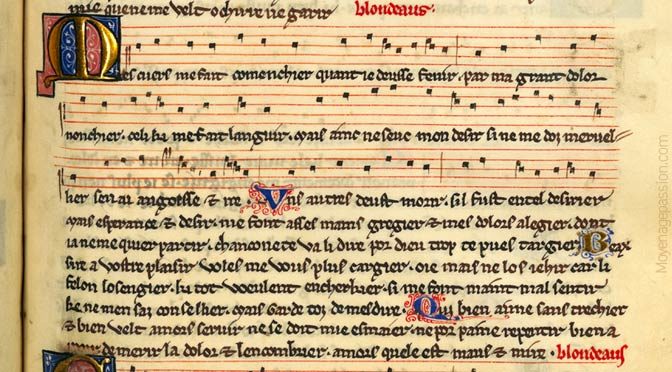 mie quen eme velt ochirre ne garir blondeaus.
Mes cuers me fait comenchier quant ie deusse fenir. par ma grant dolor
nonchier. celi ki me fait languir. mais ainc ne seut mon desir si ne me doi mervel-
lier sen ai angoisse & ire. Uns autres deust morir. sil fust en tel desirier
mais esperance & desir. me font asses mains gregier & mes dolors alegier. dont
ia ne me quier partir. chanconete va li dire por dieu trop te pues targier Beax
sire a vostre plaisir voles me vous plus cargier. oie mais ne los iehir car li
felon losengier. ki tot voeulent encherkier. si me font maint mal sentir
ke ne men sai conseillier. mais garde toi de mesdire. Qui bien aime sans trechier
& bien velt amors servir ne se doit mie esmaier. ne por paine repentir bien a
de merir la dolor & lencombrier. amors quele est maus & mire. blondeaus
Moyenagepassion.com